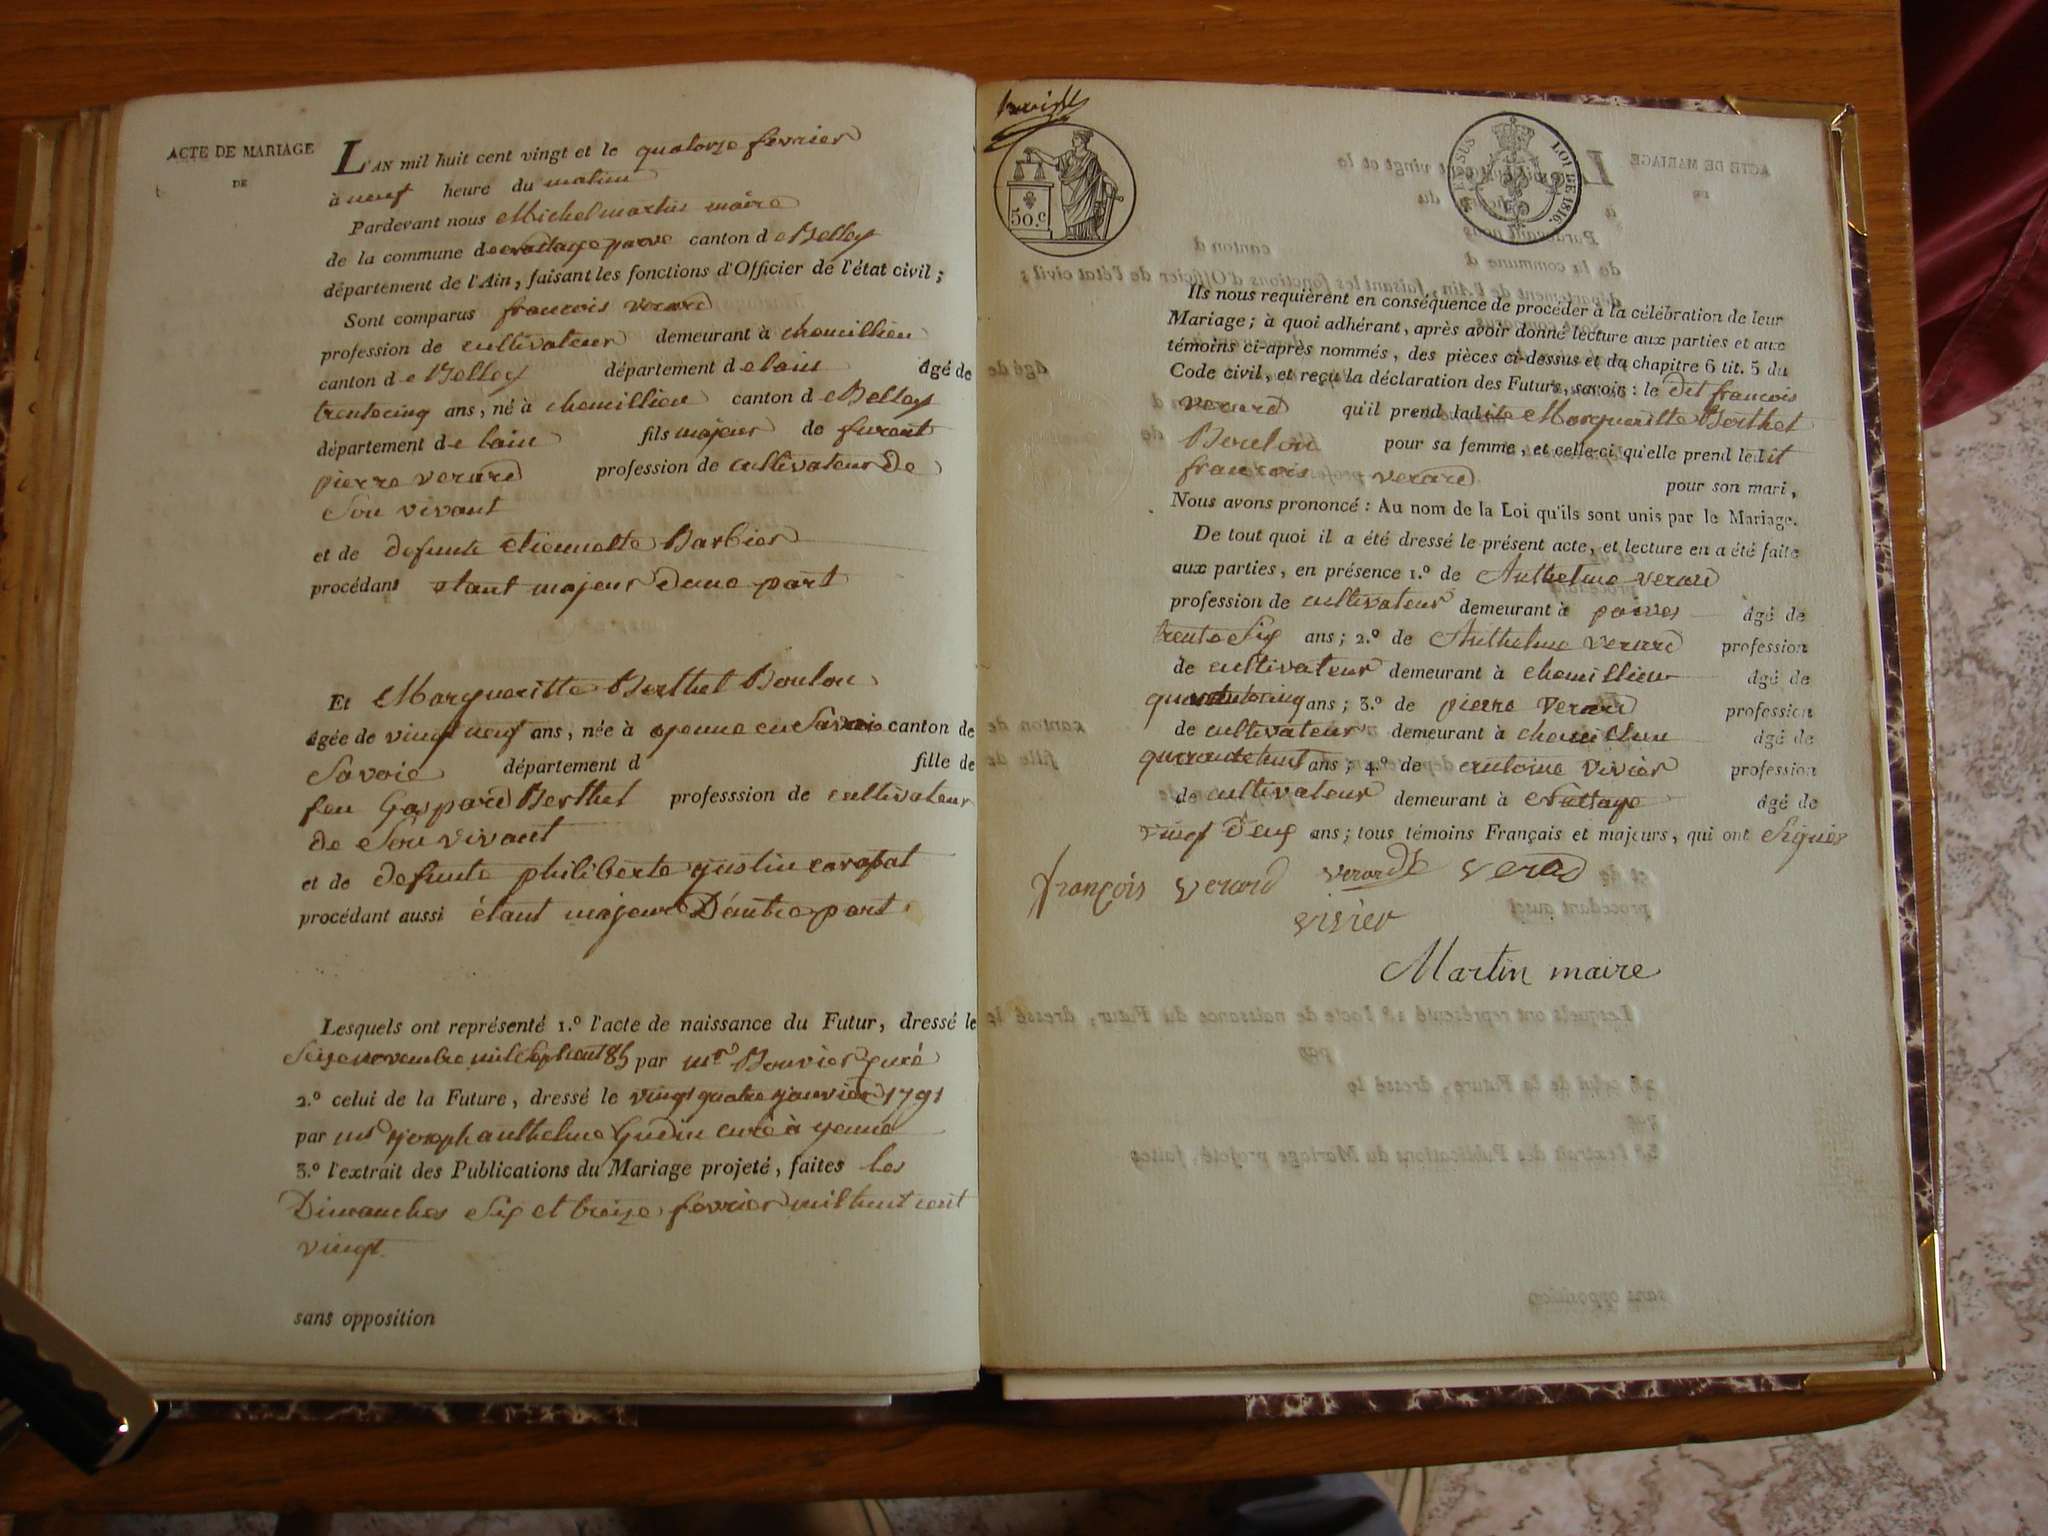 ACTE DE MARIAGE
DE
L'AN mil huit cent vingt et le quatorze fevrier
à neuf heure du matin
Pardevant nous Michel martin maire
de la commune de canton de Belley
département de l'Ain, faisant les fonctions d'Officier de l'état civil ;
Sont comparus francois verard
profession de cultivateur demeurant à chemillieu
canton de Belley département de lain âgé de
trentecinq ans, né à chemillieu canton de Belley
département de lain fils majeur de
pierre verard profession de cultivateur De
Son vivant
et de defunte etiennette Barbier
procédant etant majeur Dune part
Et Margueritte Berthet Boulon
âgée de vingt neuf ans, née à yenne en Savoie canton de
Savoie département d fille de
feu Gaspard Berthet professsion de cultivateur
de Son vivant
et de defunte philiberte
procédant aussi étant majeure D'autre part
Lesquels ont représenté 1.º l'acte de naissance du Futur, dressé le
Seize novembre mil Sept cent 85 par mr Bouvier curé
2.º celui de la Future, dressé le vingt quatre janvier 1791
par mr joseph anthelme Gudin curé à yenne
3.º l'extrait des Publications du Mariage projeté, faites les
Dimanches Six et treize fevrier mil huit cent
vingt
sans opposition
50.c
LOI DE 1816.
Ils nous requièrent en conséquence de procéder à la célébration de leur
Mariage ; à quoi adhérant, après avoir donné lecture aux parties et aux
témoins ci-après nommés, des pièces ci-dessus et du chapitre 6 tit. 5 du
Code civil, et reçu la déclaration des Futurs, savoir : le dit francois
verard qu'il prend ladite Margueritte Berthet
Boulon pour sa femme, et celle-ci qu'elle prend ledit
francois verard pour son mari,
Nous avons prononcé : Au nom de la Loi qu'ils sont unis par le Mariage.
De tout quoi il a été dressé le présent acte, et lecture en a été faite
aux parties, en présence 1.º de Anthelme verard
profession de cultivateur demeurant à âgé de
trente Six ans ; 2.º de Anthelme verard profession
de cultivateur demeurant à chemillieu âgé de
ans ; 3.º de pierre verard profession
de cultivateur demeurant à chemillieu âgé de
quarantehuit ans ; 4.º de antoine vivier profession
de cultivateur demeurant à âgé de
vingt Deux ans ; tous témoins Français et majeurs, qui ont Signés
françois verard verard verard
vivier
Martin maire